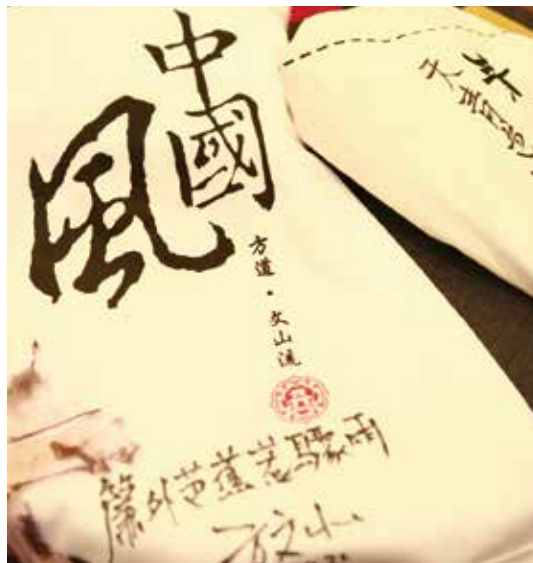 中國
風
方道·文山流
簾外芭蕉惹驟雨
方文山